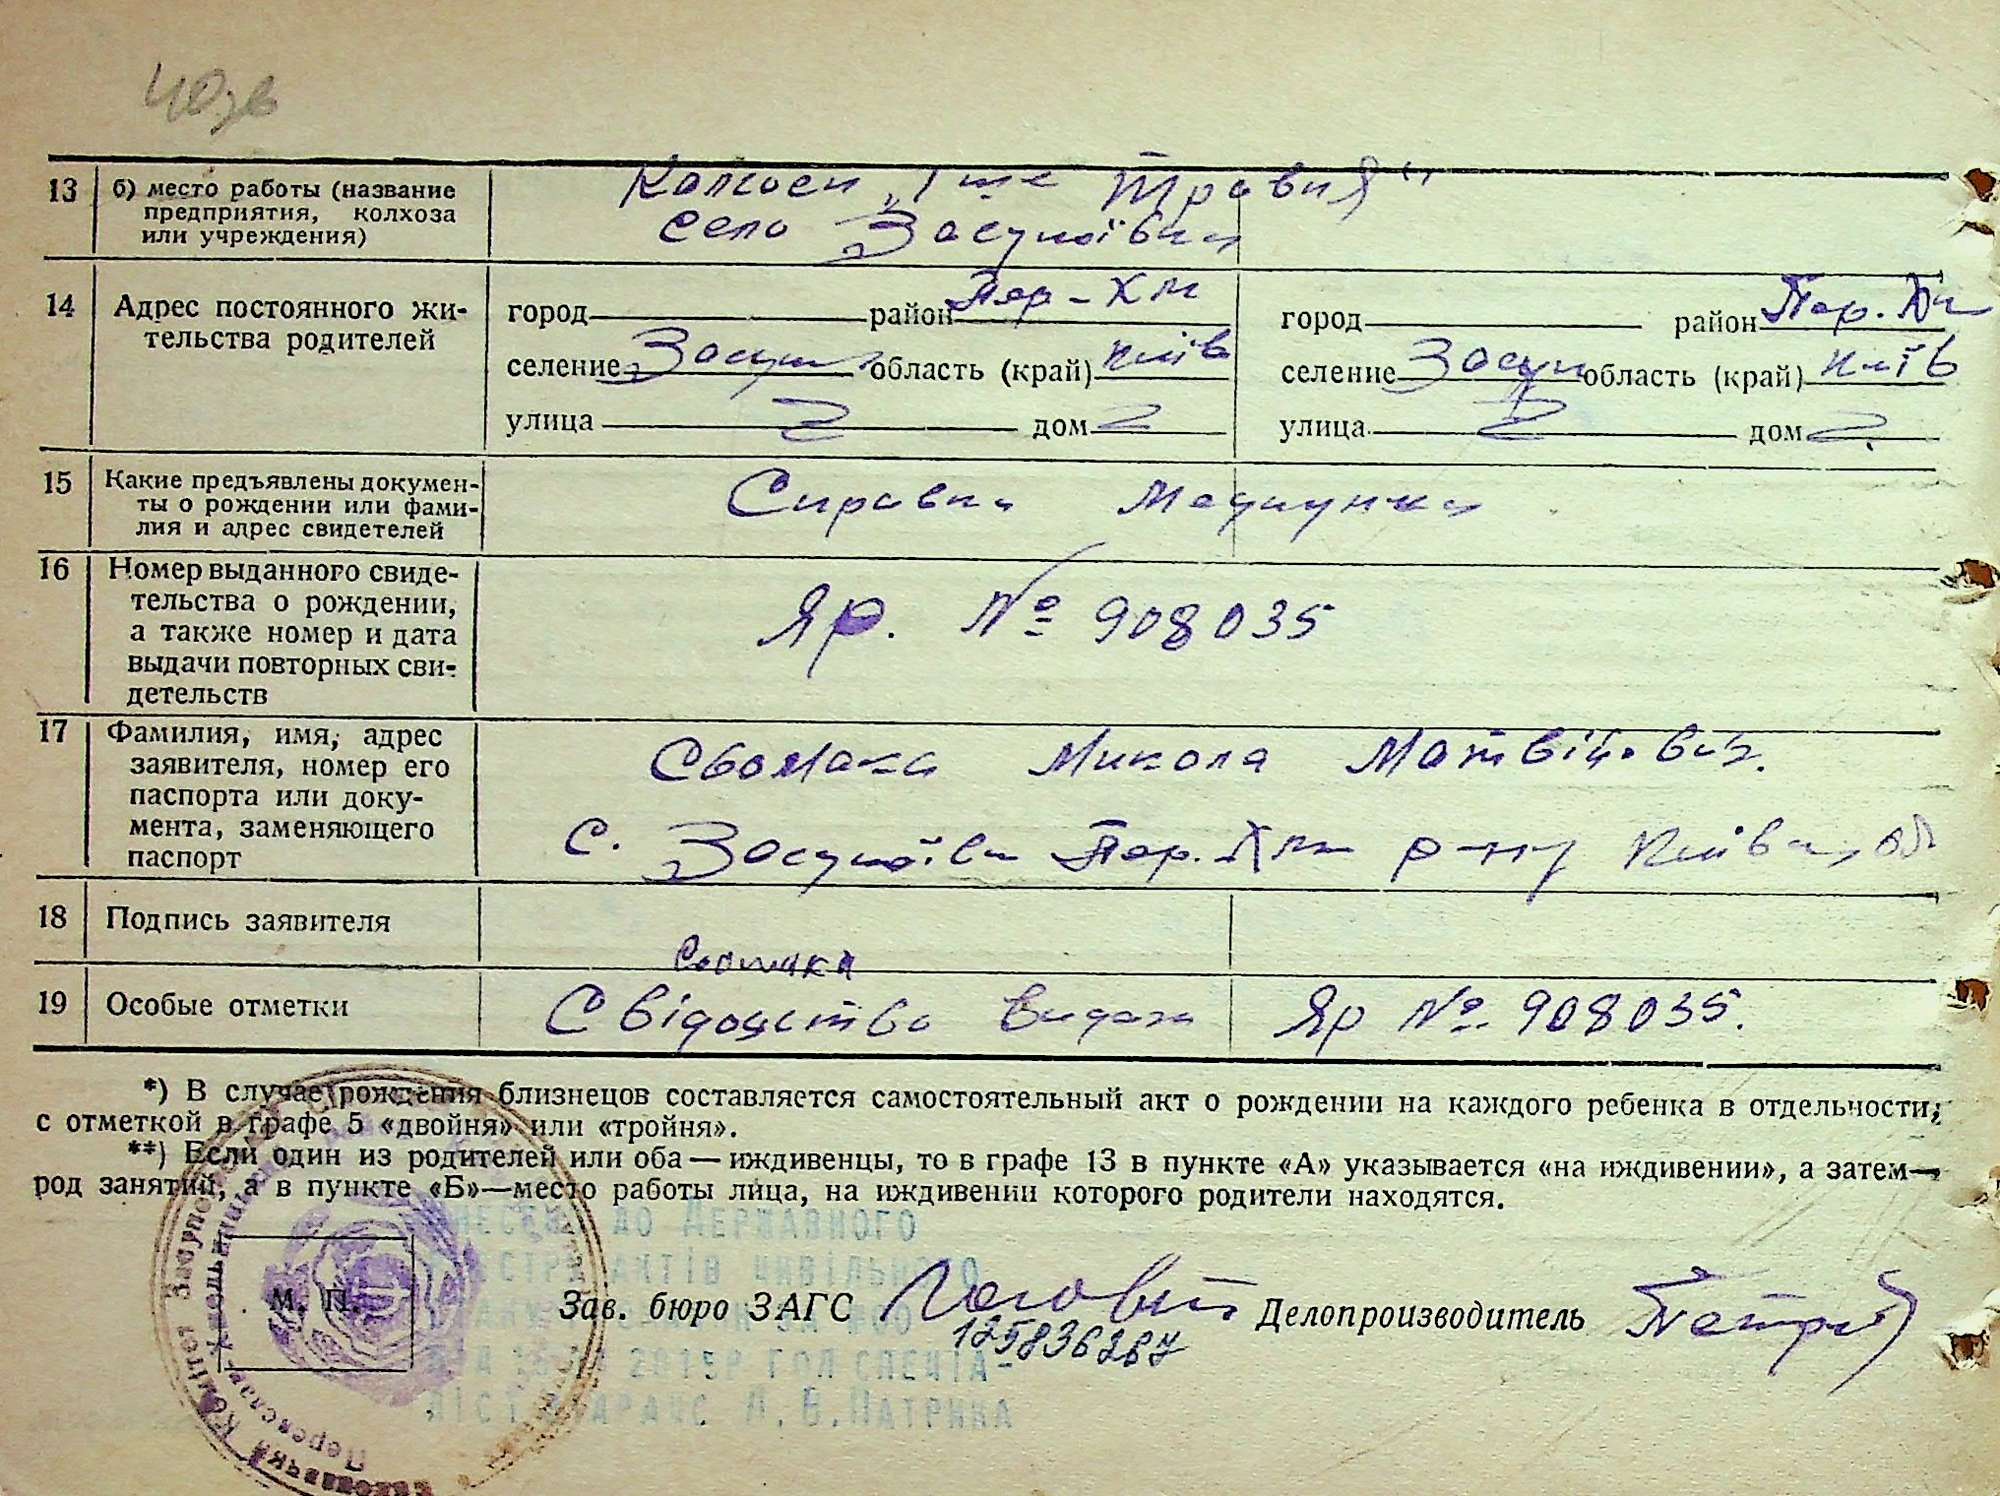 13 б) место работы (название
предприятия, колхоза
или учреждения)
Колгосп „1 ше Травня“
село Засупоївка
14 Адрес постоянного жи-
тельства родителей
город район Пер-Хм
селение Засуп область (край) Київ
улица дом
город район Пер. Хм
селение Засуп область (край) Київ
улица дом
15 Какие предъявлены докумен-
ты о рождении или фами-
лия и адрес свидетелей
Справка Медпункта
16 Номер выданного свиде-
тельства о рождении,
а также номер и дата
выдачи повторных сви-
детельств
Яр. № 908035
17 Фамилия, имя, адрес
заявителя, номер его
паспорта или доку-
мента, заменяющего
паспорт
Свомака Микола Матвійович.
с. Засупоївка Пер. Хм р-ну Київськ. обл
18 Подпись заявителя
Свомака
19 Особые отметки
Свідоцтво видано Яр № 908035.
*) В случае рождения близнецов составляется самостоятельный акт о рождении на каждого ребенка в отдельности,
с отметкой в графе 5 «двойня» или «тройня».
**) Если один из родителей или оба — иждивенцы, то в графе 13 в пункте «А» указывается «на иждивении», а затем—
род занятий, а в пункте «Б»—место работы лица, на иждивении которого родители находятся.
до Державного
актів цивільного
М. П.
Зав. бюро ЗАГС
Делопроизводитель
125836267
А.В.Патрина